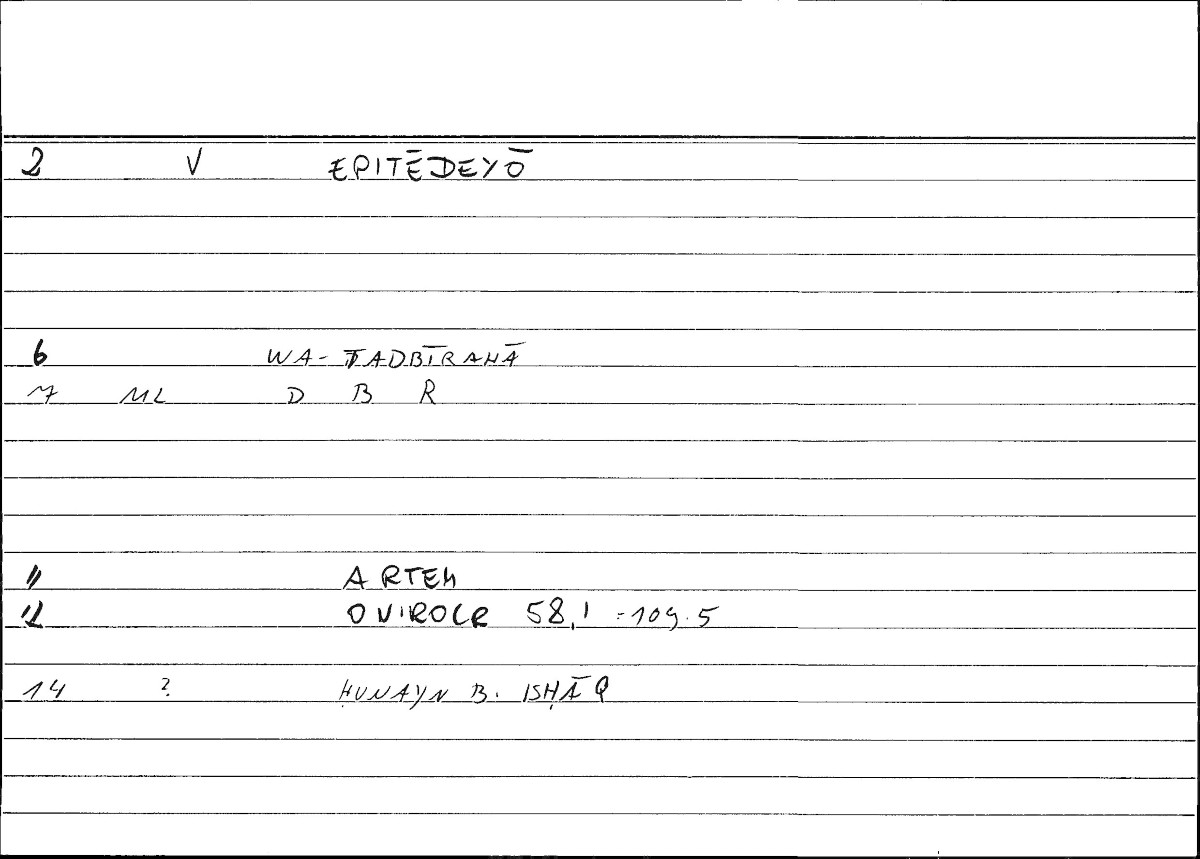 2 V EPITĒDEYŌ
6 WA-TADBĪRAHĀ
7 ML D B R
11 ARTEM
12 ONIROCR 58,1 = 109.5
14 ? ḤUNAYN B. ISḤĀQ